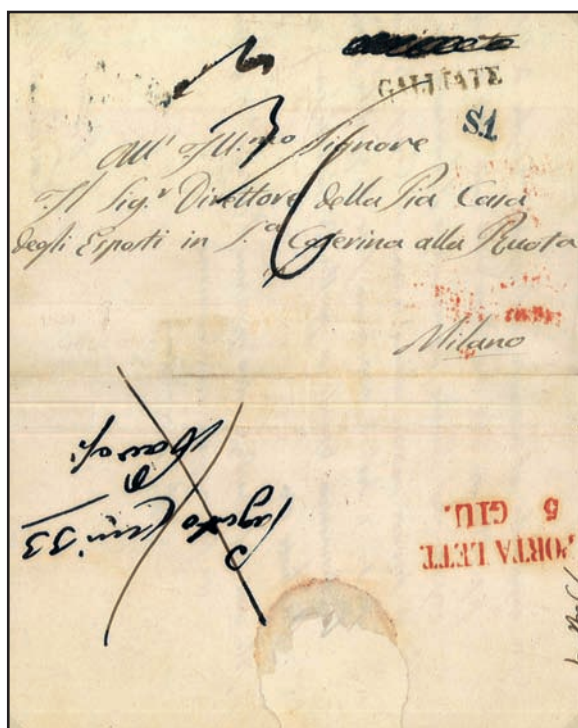 GALLIATE
S.1
All' Ill.mo Signore
Il Sig.r Direttore della Pia Casa
degli Esposti in S.a Caterina alla Ruota
Milano
Pagato Cm.i 33
PORTA LETT.
5 GIU.